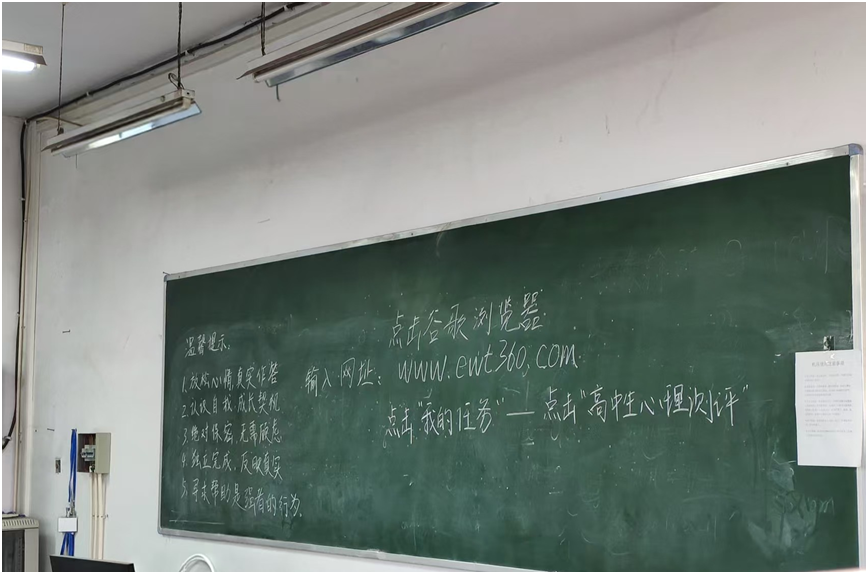 温馨提示:
1.放松心情,真实作答
2.认识自我,成长契机
3.绝对保密,无需顾虑
4.独立完成,反映真实
5.寻求帮助是强者的行为.
点击谷歌浏览器
输入网址：www.ewt360.com
点击“我的任务”—点击“高中生心理测评”